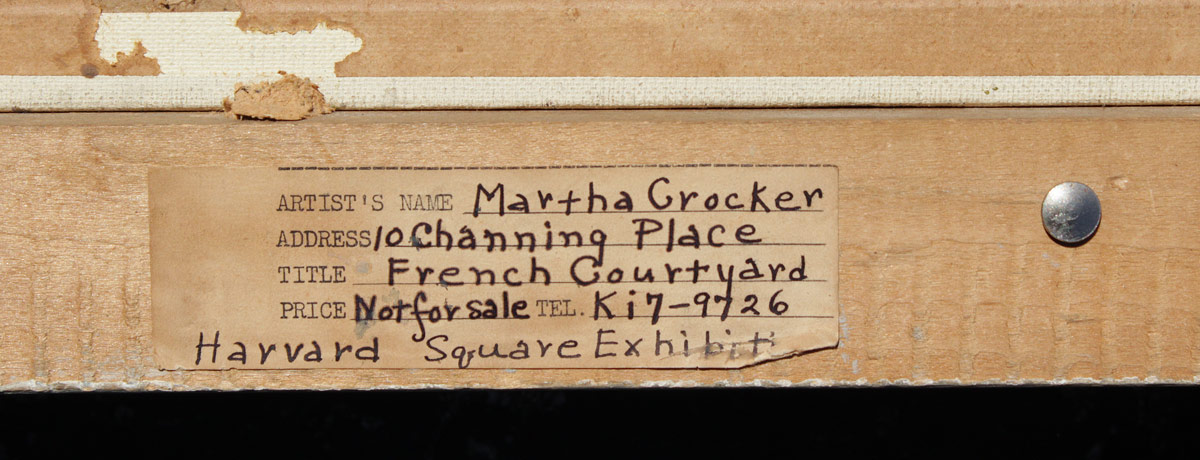 ARTIST'S NAME Martha Crocker
ADDRESS 10 Channing Place
TITLE French Courtyard
PRICE Not for sale TEL. Ki7-9726
Harvard Square Exhibit